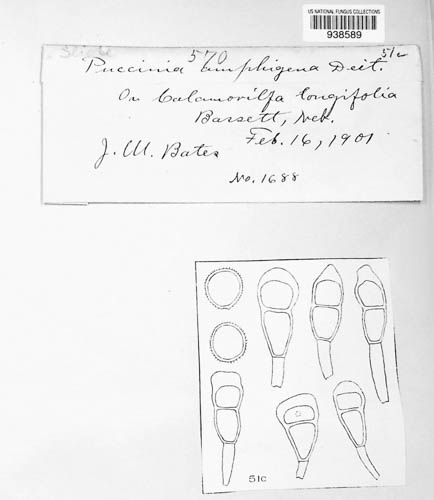 US NATIONAL FUNGUS COLLECTIONS
938589
Slide 570 51c
Puccinia amphigena Diet.
On Calamovilfa longifolia
Bassett, Neb.
Feb. 16, 1901
J. M. Bates
No. 1688
51c